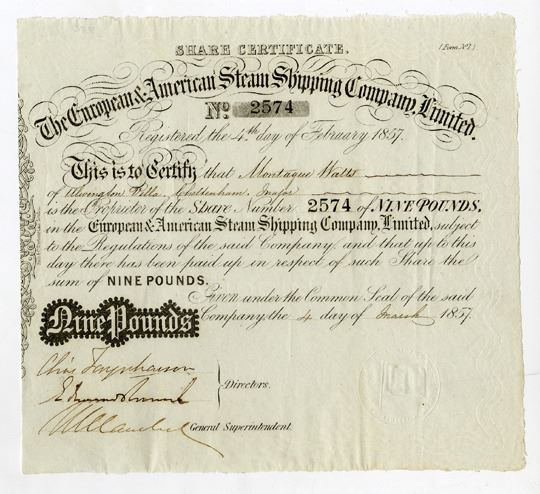 SHARE CERTIFICATE.
(Form No. 1)
The European & American Steam Shipping Company, Limited.
No. 2574
Registered the 4th day of February 1857.
This is to Certify that Montague Watts
of Villa Cheltenham
is the Proprietor of the Share Number 2574 of NINE POUNDS,
in the European & American Steam Shipping Company, Limited, subject
to the Regulations of the said Company and that up to this
day there has been paid up in respect of such Share the
sum of NINE POUNDS.
Given under the Common Seal of the said
Nine Pounds
Company, the 4 day of March 1857.
Directors.
General Superintendent.